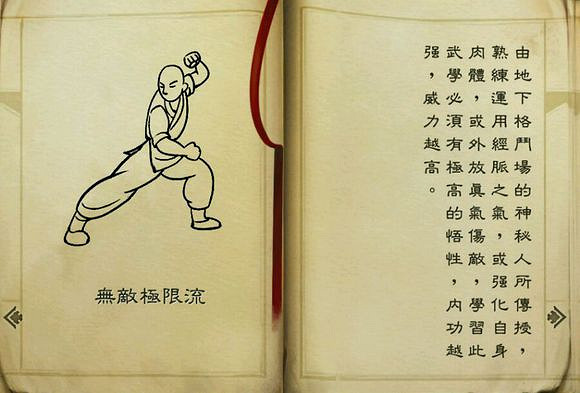 無敵極限流
由地下格鬥場的神秘人所傳授，
熟練運用經脈之氣，或强化自身
肉體，或外放真氣傷敵，學習此
武學必須有極高的悟性，内功越
强，威力越高。